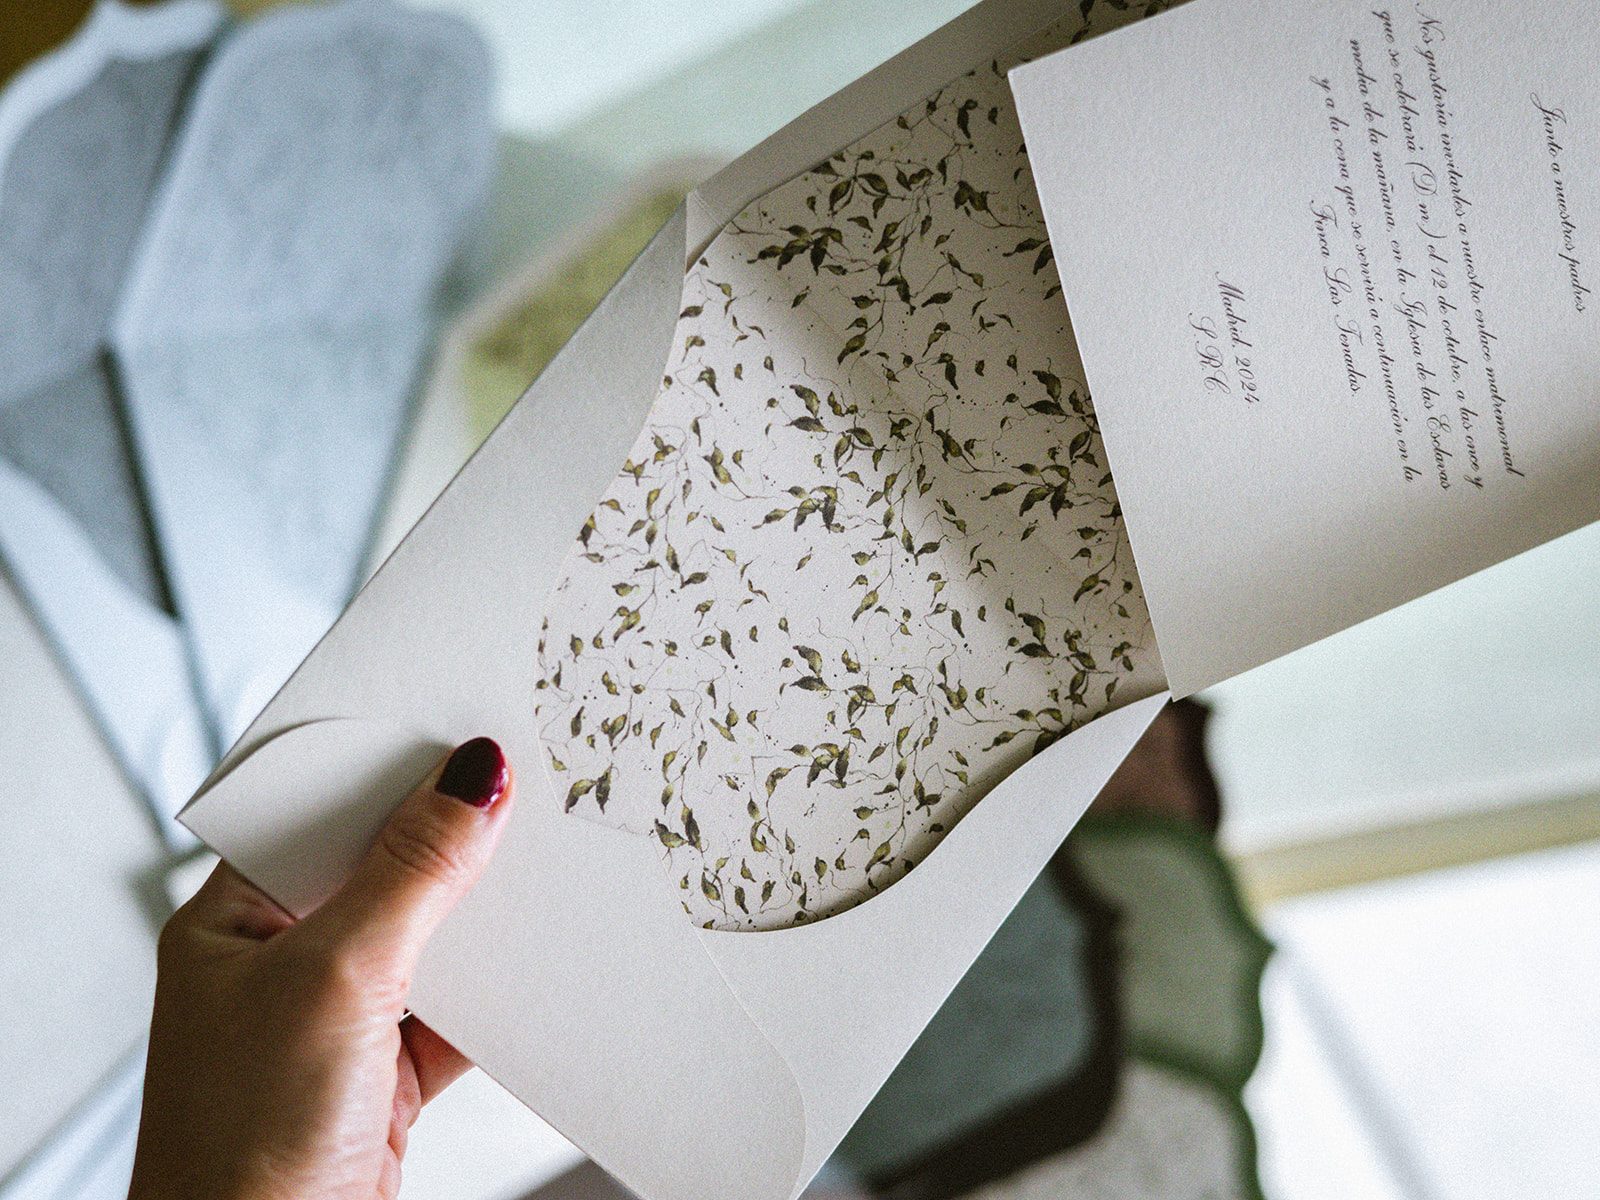 Junto a nuestros padres
Nos gustaría invitarles a nuestro enlace matrimonial
que se celebrará (D.m.) el 12 de octubre, a las once y
media de la mañana, en la Iglesia de las Esclavas
y a la cena que se servirá a continuación en la
Finca Las Tenadas.
Madrid, 2024
S.R.C.